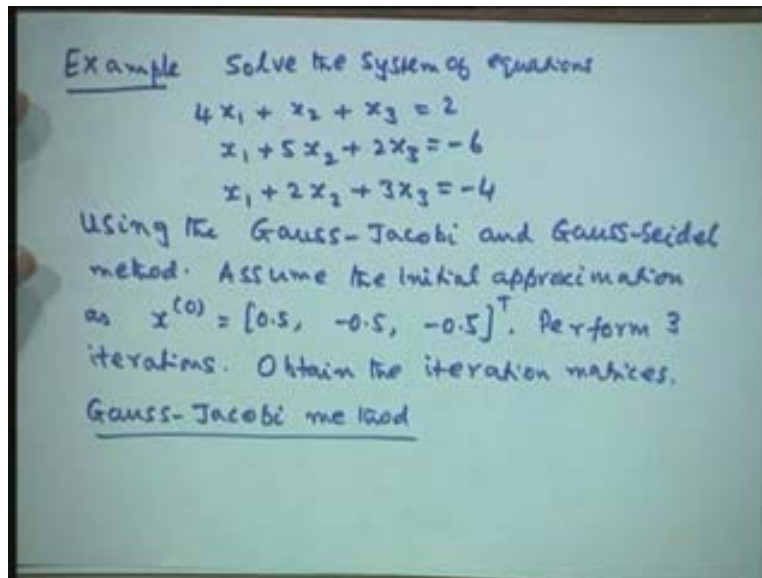 Example Solve the System of equations
4x₁ + x₂ + x₃ = 2
x₁ + 5x₂ + 2x₃ = -6
x₁ + 2x₂ + 3x₃ = -4
Using the Gauss-Jacobi and Gauss-Seidel
method. Assume the initial approximation
as x⁽⁰⁾ = [0.5, -0.5, -0.5]ᵀ. Perform 3
iterations. Obtain the iteration matrices.
Gauss-Jacobi method